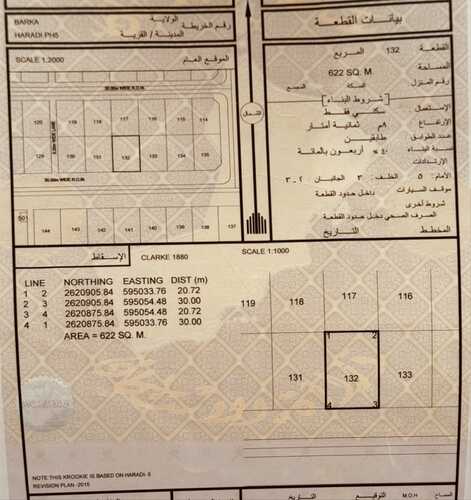 بيانات القطعة
القطعة 132 المربع
المساحة 622 SQ. M.
رقم المنزل السكة المجمع
[شروط البناء]
الإستعمال سكني فقط
الإرتفاع ٨م ثمانية أمتار
عدد الطوابق طابقين
نسبة البناء ٤٠٪ أربعون بالمائة
الإرتدادات
الأمام: ٥ الخلف: ٣ الجانبان ٢ـ٣
موقف السيارات داخل حدود القطعة
شروط أخرى
الصرف الصحي داخل حدود القطعة
المخطط التاريخ
الشمال
BARKA الولاية
HARADI PH5 المدينة / القرية رقم الخريطة
SCALE 1:2000 الموقع العام
30.00m WIDE R.O.W.
120 118 117 116 115 114
6.00m WIDE LANE
129 130 131 132 133 134 135
30.00m WIDE R.O.W.
501
144 143 142 141 140 139 138 137
الإسقاط CLARKE 1880 SCALE 1:1000
LINE NORTHING EASTING DIST (m)
1 2 2620905.84 595033.76 20.72
2 3 2620905.84 595054.48 30.00
3 4 2620875.84 595054.48 20.72
4 1 2620875.84 595033.76 30.00
AREA = 622 SQ. M.
119 118 117 116
1 2
131 132 133
4 3
NOTE THIS KROOKIE IS BASED ON HARADI- 5
REVISION PLAN -2015
التاريخ التوقيع M.D.H مساح